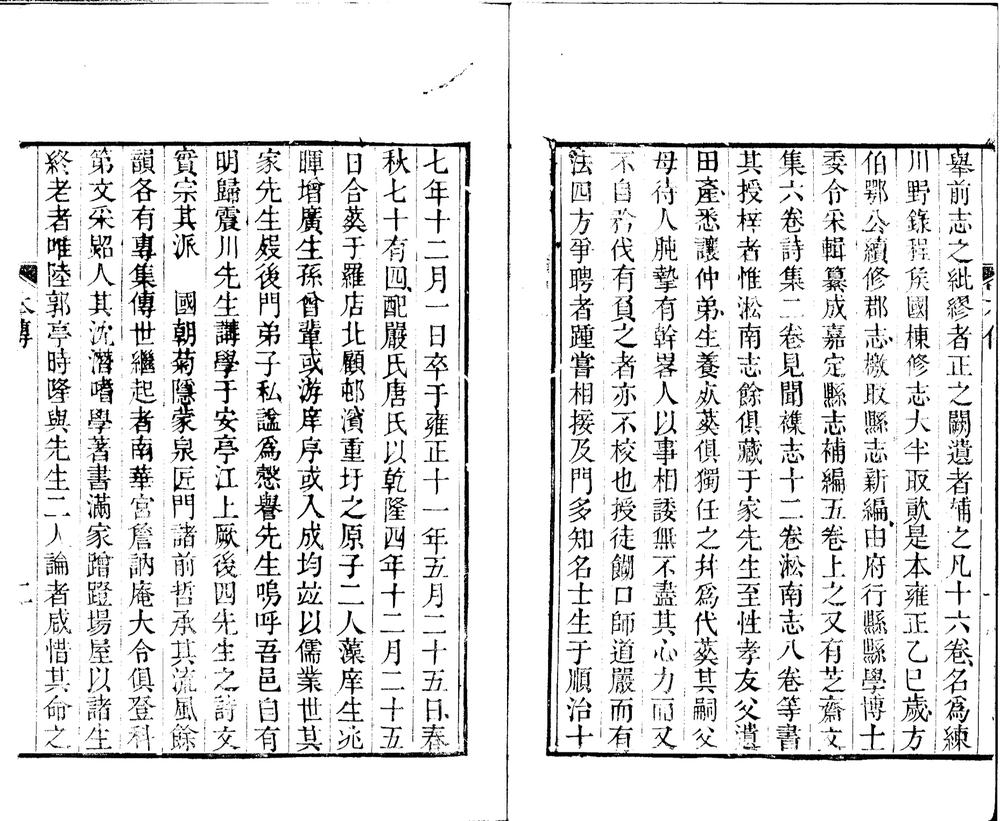 舉前志之紕繆者正之闕遺者補之凡十六卷名爲練
川野錄程矦國棟修志大半取𣢾是本雍正乙巳歲方
伯鄂公續修郡志檄取縣志新編由府行縣縣學博士
委令采輯纂成嘉定縣志補編五卷上之又有芝齋文
集六卷詩集二卷見聞襍志十二卷淞南志八卷等書
其授梓者惟淞南志餘俱藏于家先生至性孝友父遺
田產悉讓仲弟生養𣦸葬俱獨任之幷爲代葬其嗣父
母待人肫摯有幹畧人以事相諉無不盡其心力而又
不自矜伐有負之者亦不校也授徒餬口師道嚴而有
法四方爭聘者踵嘗相接及門多知名士生于順治十
七年十二月一日卒于雍正十一年五月二十五日春
秋七十有四配嚴氏唐氏以乾隆四年十二月二十五
日合葬于羅店北顧邨濱重圩之原子二人藻庠生兆
暉增廣生孫曾輩或游庠序或入成均竝以儒業世其
家先生歿後門弟子私諡爲慤譽先生嗚呼吾邑自有
明歸震川先生講學于安亭江上厥後四先生之詩文
實宗其派 國朝菊隱蒙泉匠門諸前哲承其流風餘
韻各有專集傳世繼起者南華宮詹訥庵大令俱登科
第文采炤人其沈潛嗜學著書滿家蹭蹬場屋以諸生
終老者唯陸郭亭時隆與先生二人論者咸惜其命之
本傳
二